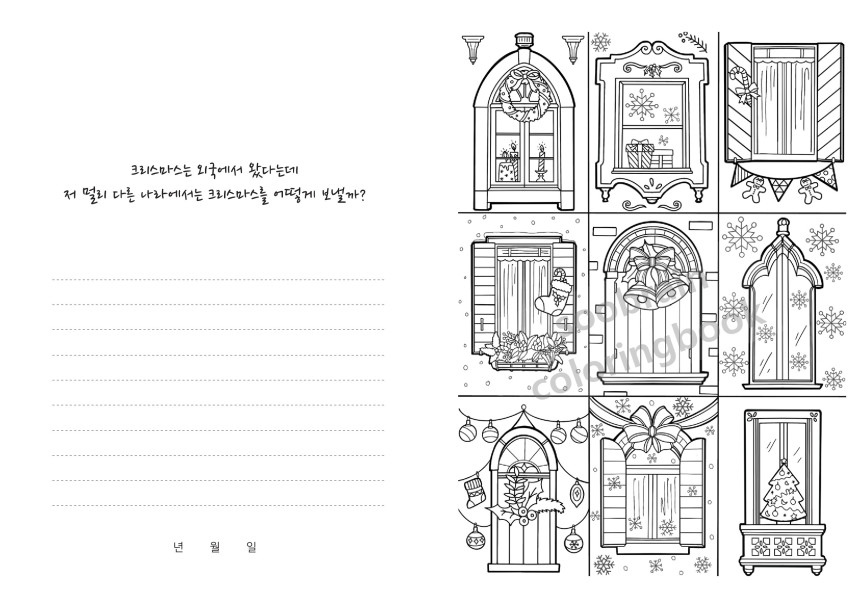 크리스마스는 외국에서 왔다는데
저 멀리 다른 나라에서는 크리스마스를 어떻게 보낼까?
년 월 일
coloringbook